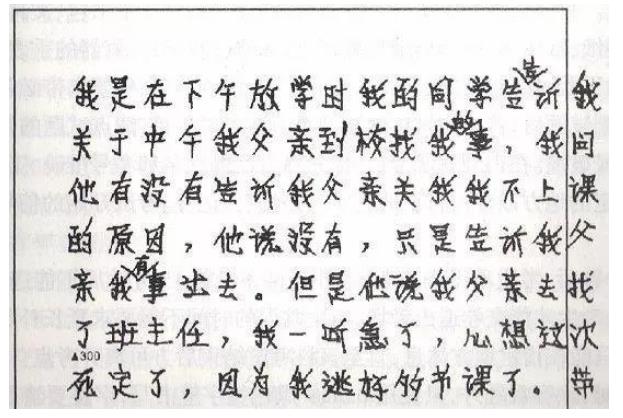 我是在下午放学时我的同学告诉我
关于中午我父亲到校找我的事，我问
他有没有告诉我父亲关我我不上课
的原因，他说没有，只是告诉我父
亲我有事出去。但是他说我父亲去找
了班主任，我一听急了，心想这次
▲300
死定了 因为我逃好多节课了。带